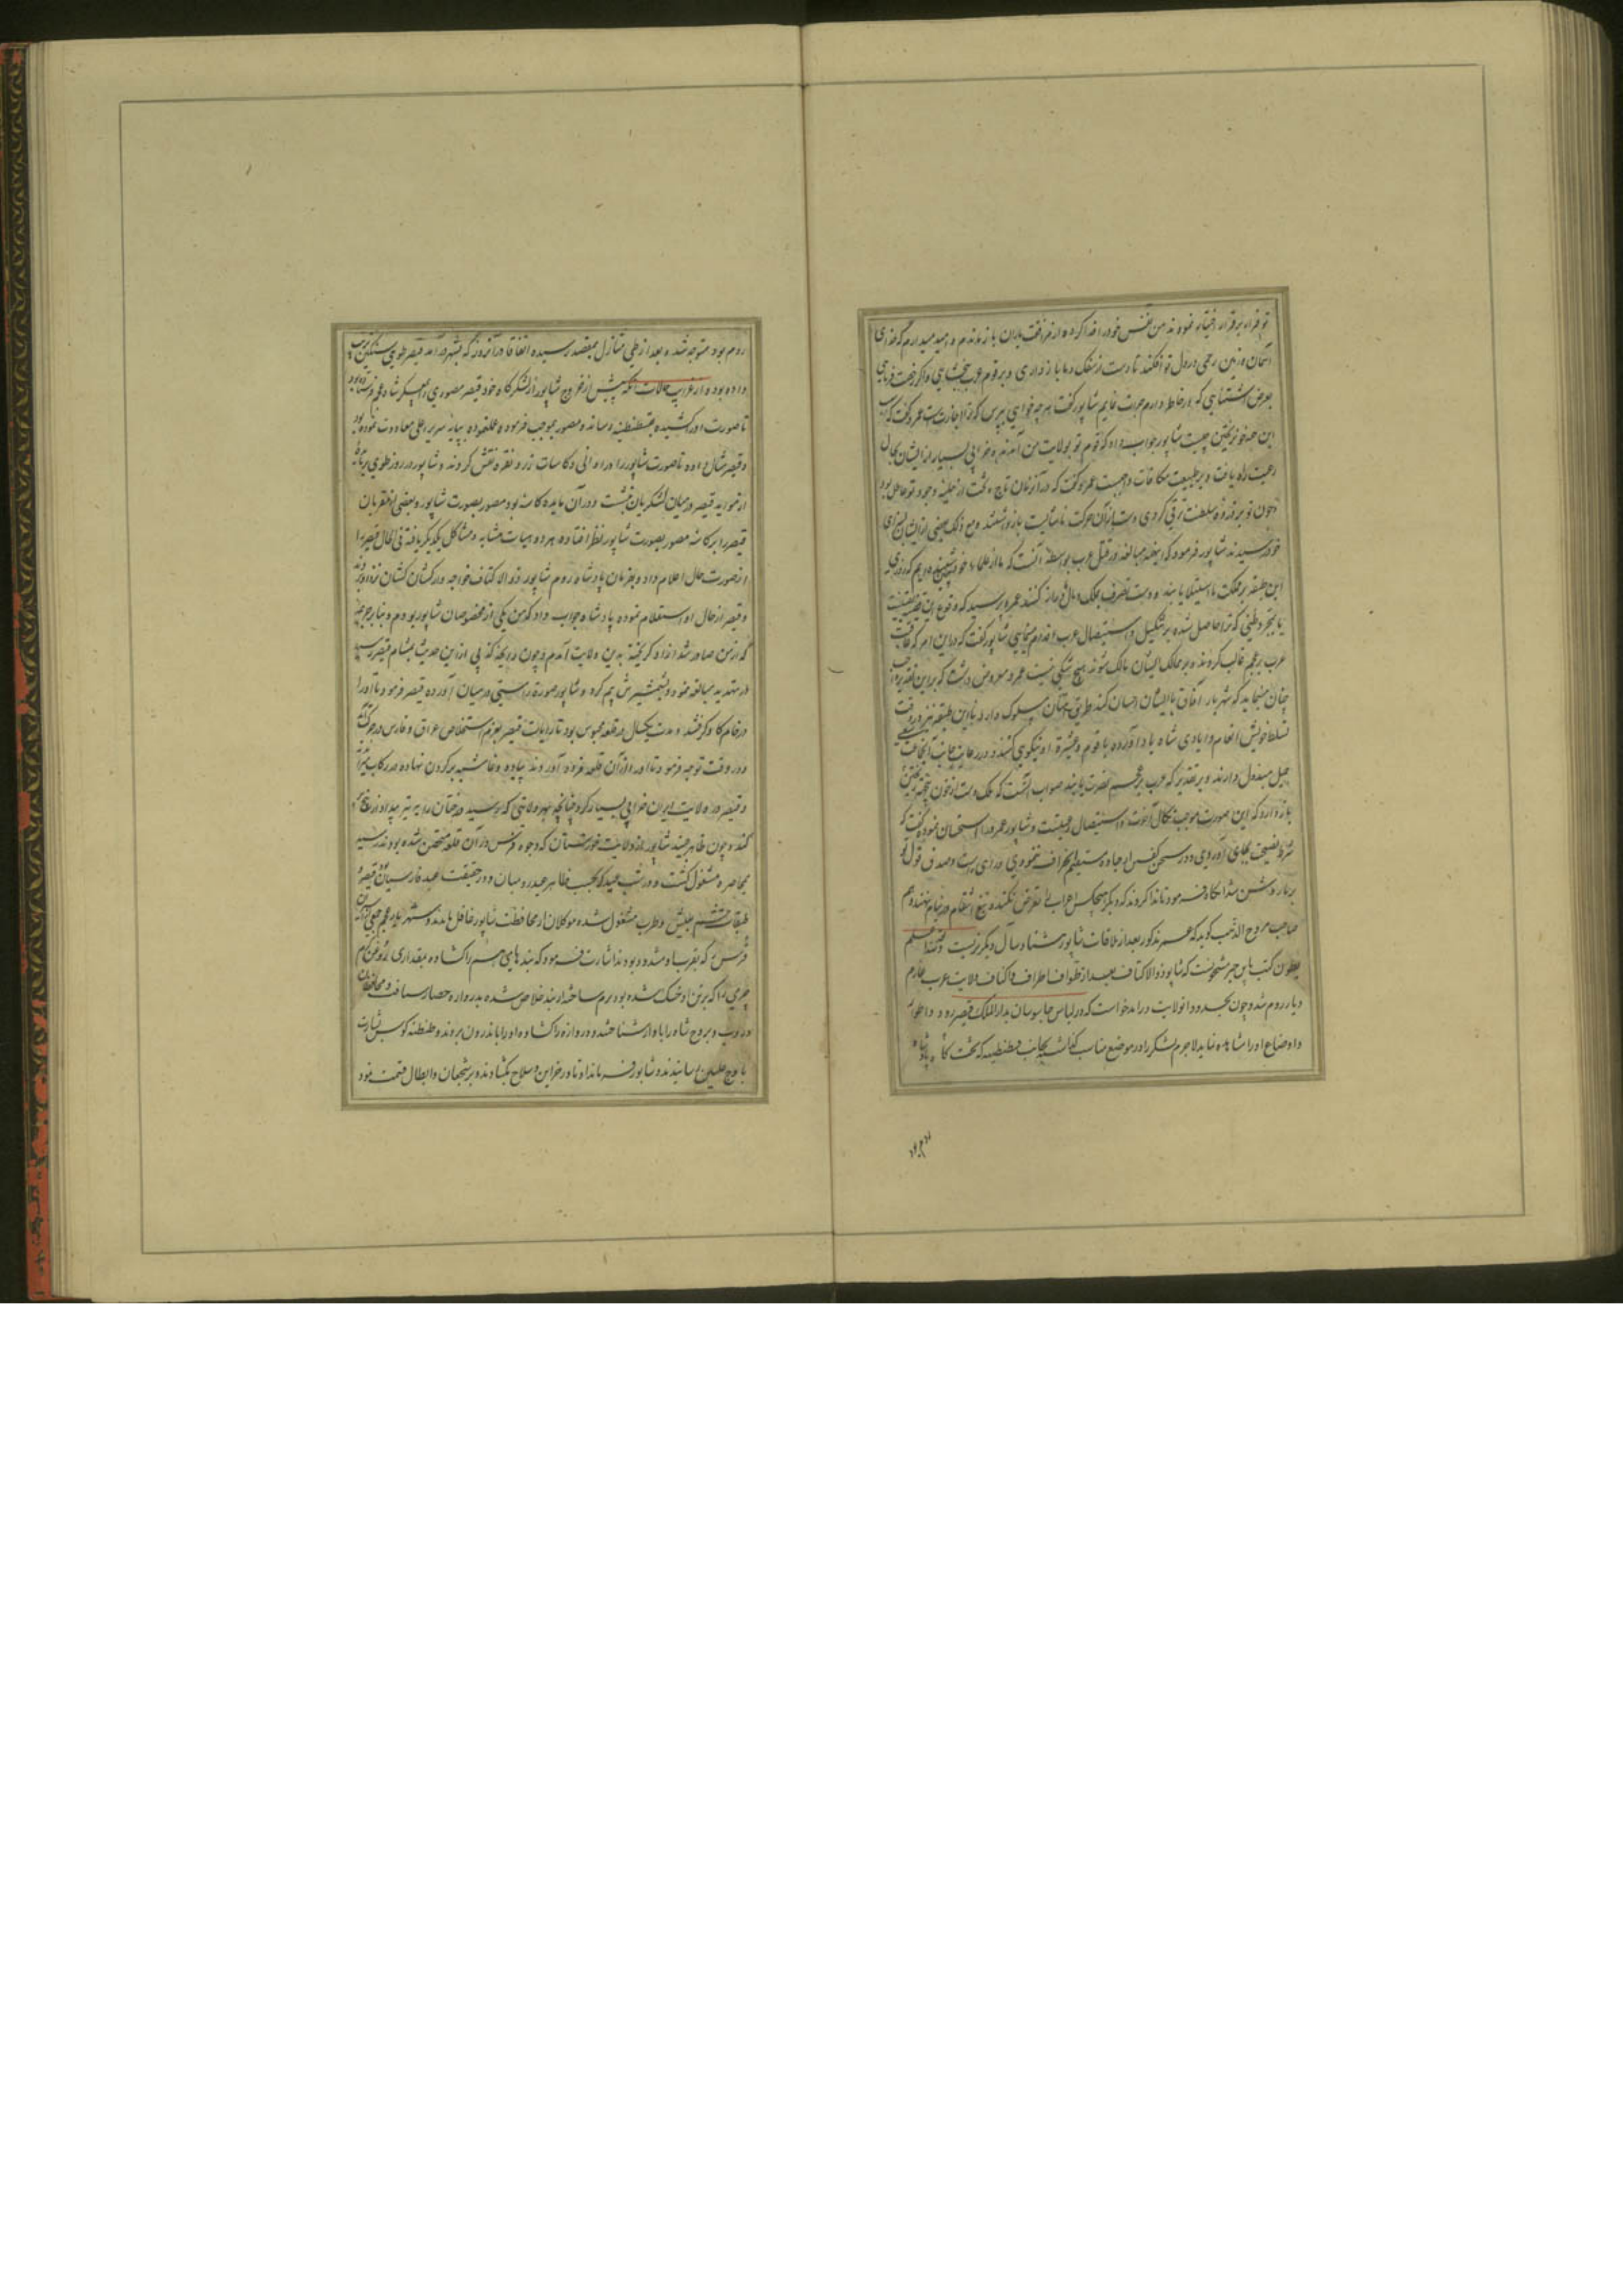 تو فرار بر قرار اختیار نمودند من نفس خود را فدا کرده از مرافقت یاران باز ماندم و امید میدارم که خدای
آسمان و زمین رحمی در دل تو افکند تا دست از سفک دماء باز داری و بر قوم عرب ببخشای و اگر رخصت فرمایی
بعرض اشتباهی که در خاطر دارم جرات نمایم شاپور گفت هر چه خواهی بپرس که ترا اجازت است عمرو گفت که سبب
این همه خونریختن چیست شاپور جواب داد که قوم تو بولایت من آمدند و خرابی بسیار از ایشان بحال
رعیت راه یافت و بر طبیعت مکافات واجبست عمرو گفت که در آن زمان تاج و تخت از حلیه وجود تو عاطل بود
و چون تو بر ذروه سلطنت ترقی کردی دست از آن حرکت ناشایست باز داشتند و مع ذلک بعضی از ایشان بسزای
خود رسیدند شاپور فرمود که اینهمه مبالغه در قتل عرب بواسطه آنست که ما از علماء خود شنیده ایم که روزی
این طبقه بر مملکت ما استیلا یابند و دست تصرف بملک و مال ما دراز کنند عمرو پرسید که وقوع این قضیه یقینست
یا بمجرد ظنی که ترا حاصل شده بر تنکیل و استیصال عرب اقدام مینمایی شاپور گفت که در این امر که عاقبت
عرب بر عجم غالب گردند و بر ممالک ایشان مالک شوند هیچ شکی نیست عمرو معروض داشت که بر این تقدیر
چنان میباید که شهریار آفاق با ایشان احسان کند و طریق امتنان مسلوک دارد تا این طبقه نیز در وقت
تسلط خویش انعام و ایادی شاه یاد آورده با قوم و عشیره او نیکویی کنند و در رعایت جانب آنجماعت
جمیل مبذول دارند و بر تقدیر که عرب بر عجم نصرت یابند صواب آنست که ملک دست از خون ریختن
باز دارد که این صورت موجب نکال آخرت و استیصال رعیتست و شاپور عمرو را استحسان نموده گفت که
شرط نصیحت بجای آوردی و در سخن کفتن از جاده مستقیم انحراف ننمودی و رای تو راست و صدق قول تو
بر ما روشن شد آنگاه فرمود تا ندا کردند که دیگر هیچکس اعراب را تعرض نکند و تیغ انتقام در نیام نهند و هم
صاحب مروج الذهب گوید که عمرو مذکور بعد از ملاقات شاپور هشتاد سال دیگر بزیست و الله اعلم
بطون کتب باین خبر مشحونست که شاپور ذوالاکتاف بعد از طواف اطراف و اکناف ولایت عرب عازم
دیار روم شد و چون بحدود آنولایت درآمد خواست که در لباس جاسوسان بدار الملک قیصر رود و اطوار
و اوضاع او را مشاهده نماید لاجرم لشکر را در موضع مناسب گذاشته بجانب قسطنطنیه که تخت گاه پادشاه
روم بود
روم بود متوجه شد و بعد از طی منازل بمقصد رسیده اتفاقا در آنروز که بشهر درآمد قیصر طویی سنگین ترتیب
داده بود و از غرایب حالات آنکه پیش از خروج شاپور از لشکرگاه خود قیصر مصوری بمعسکر شاه عجم فرستاده بود
تا صورت او را کشیده بقسطنطنیه رساند و مصور بموجب فرموده عملنموده بپایه سریر اعلی معاودت نموده بود
و قیصر مثال داده تا صورت شاپور را در اوانی و کاسات زر و نقره نقش کردند و شاپور در روز طوی بر مائده
از موائد قیصر در میان لشکریان نشست و در آن مایده کاسه بود مصور بصورت شاپور و بعضی از مقربان
قیصر را بر کاسه مصور بصورت شاپور نظر افتاده هر دو هیات مشابه و مشاکل یکدیگر یافته فی الحال قیصر را
از صورت حال اعلام داد و بفرمان پادشاه روم شاپور ذوالاکتاف خواجه وار کشان کشان نزد او بردند
و قیصر از حال او استعلام نموده پادشاه جواب داد که من یکی از مخصوصان شاپور بودم و بنا بر جریمه
که از من صادر شد از او گریخته بدین ولایت آمدم و چون رایحه کذبی از این حدیث بمشام قیصر رسید
در تهدید مبالغه نمود و بشمشیرش بیم کرد و شاپور صورة راستی در میان آورده قیصر فرمود تا او را
در خام گاو گرفتند و مدت یکسال در قلعه محبوس بود تا رایات قیصر بعزم استخلاص عراق و فارس در حرکت آمد
و در وقت توجه فرمود تا او را از آن قلعه فرود آوردند پیاده و غاشیه بر گردن نهاده در رکاب
و قیصر در ولایت ایران خرابی بسیار کرد چنانچه بهر ولایتی که رسید درختان را به تبر بیداد از بیخ
کند و چون بظاهر جند شاپور از ولایت خوزستان که وجوه فرس در آن قلعه متحصن شده بودند رسید
بمحاصره مشغول گشت و در شب عیدی که بحسب ظاهر عید رومیان و در حقیقت عید فارسیان بود قیصر و
طبقات حشم بعیش و طرب مشغول شده موکلان از محافظت شاپور غافل ماندند و شهریار عجم جمعی از اسیران
فرس را که بقرب او مشدود بودند اشارت فرمود که بندهای هم را گشاده مقداری روغن گرم
چرمی را که بر تن او خشک شده بود نرم ساختند از بند خلاص شده بدروازه حصار مسافت و محافظان
دروب و بروج شاه را باواز شناختند و دروازه را گشاده او را باندرون بردند و طنطنه کوس بشارت
باوج علیین رسانیدند و شاپور فرمان داد تا در خزاین و سلاح بگشادند و بر شجعان و ابطال قسمت نمود